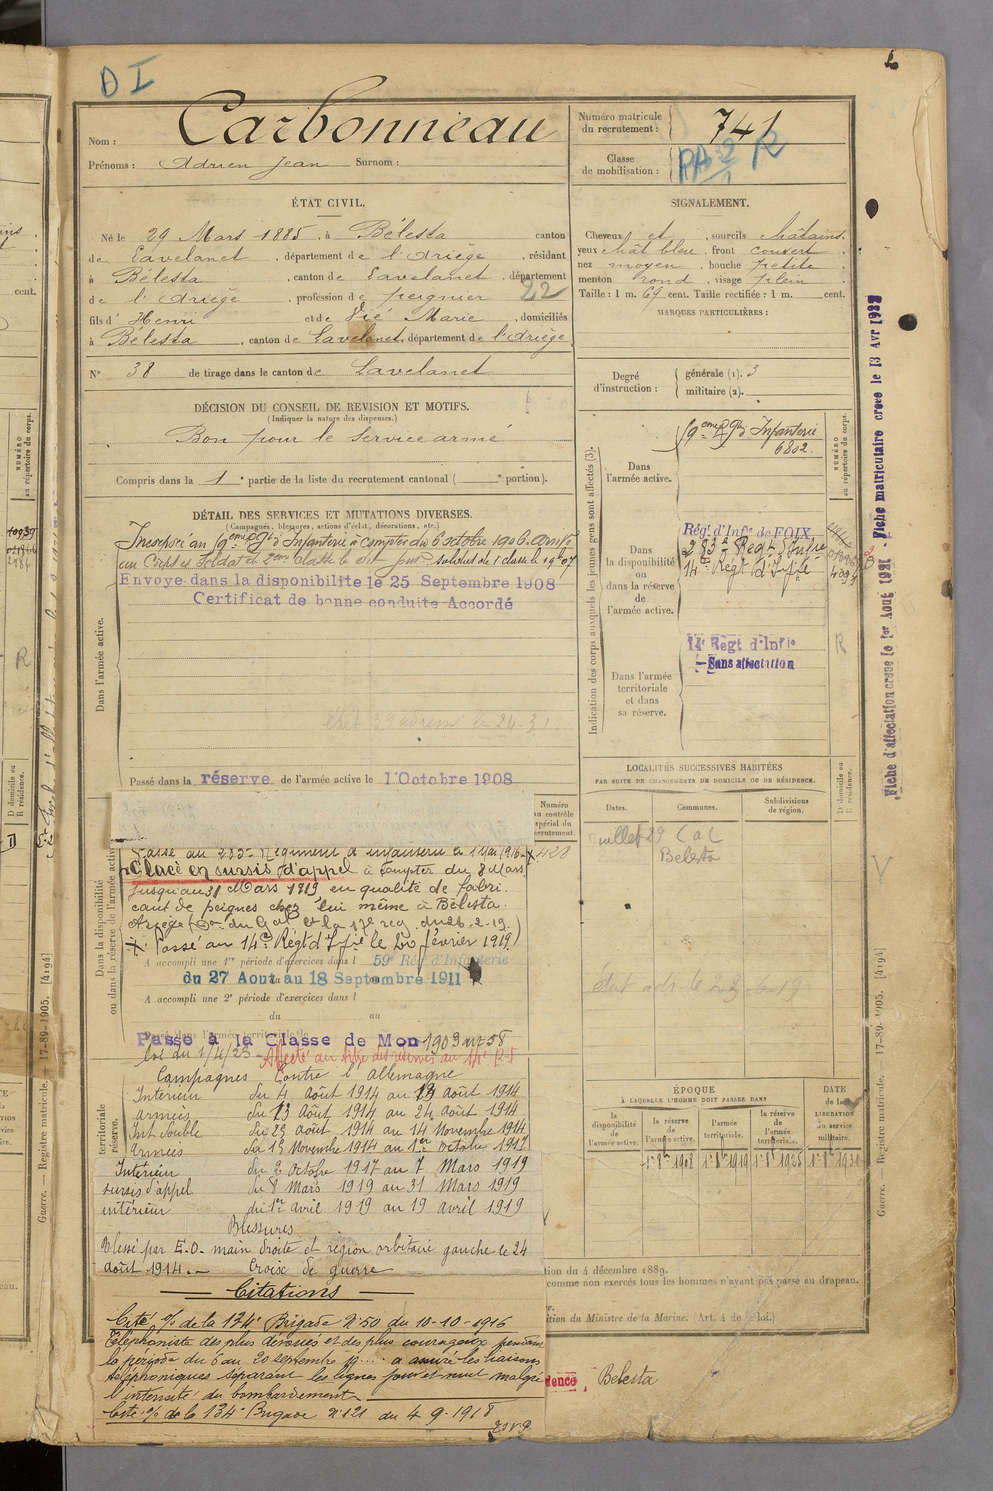 D I
Nom : Carbonneau
Prénoms : Adrien Jean Surnom :
Numéro matricule du recrutement : 741
Classe de mobilisation :
PA 2 R
ÉTAT CIVIL.
Né le 29 Mars 1885, à Bélesta canton
de Lavelanet, département de l'Ariège, résidant
à Bélesta, canton de Lavelanet, département
de l'Ariège, profession de peignier 22
fils d' Henri et de Vié Marie, domiciliés
à Bélesta, canton de Lavelanet, département de l'Ariège
N° 38 de tirage dans le canton de Lavelanet
SIGNALEMENT.
Cheveux et sourcils châtains.
yeux chât bleu, front couvert
nez moyen, bouche petite
menton rond, visage plein
Taille : 1 m. 69 cent. Taille rectifiée : 1 m. cent.
MARQUES PARTICULIÈRES :
Degré d'instruction : générale (1). 3
militaire (2).
DÉCISION DU CONSEIL DE REVISION ET MOTIFS.
(Indiquer la nature des dispenses.)
Bon pour le service armé
Compris dans la 1e partie de la liste du recrutement cantonal ( e portion).
DÉTAIL DES SERVICES ET MUTATIONS DIVERSES.
(Campagnes, blessures, actions d'éclat, décorations, etc.)
Incorporé au 9eme Rgt d'Infanterie à compter du 6 octobre 1906. Arrivé
au Corps et Soldat de 2eme classe le dit jour.
Envoye dans la disponibilite le 25 Septembre 1908
Certificat de bonne conduite Accordé
Dans l'armée active.
Passé dans la réserve de l'armée active le 1 Octobre 1908
Indication des corps auxquels les jeunes gens sont affectés (3).
NUMÉRO au répertoire du corps.
Dans l'armée active.
9eme Rgt d'Infanterie
6802.
Dans la disponibilité ou dans la réserve de l'armée active.
Rég. d'Infie de FOIX
283e Regt d'Infie
14e Regt d'Infie
Dans l'armée territoriale et dans sa réserve.
14e Regt d'Infie
Sans affectation
R
Fiche d'affectation creee le 1er Aout 1921 - Fiche matriculaire creee le 13 Avr 1932
LOCALITÉS SUCCESSIVES HABITÉES
PAR SUITE DE CHANGEMENTS DE DOMICILE OU DE RÉSIDENCE.
D domicile ou R résidence.
Dates. Communes. Subdivisions de région.
Juillet 29
Belesta
V
Numéro au contrôle spécial du recrutement.
428
Dans la disponibilité ou dans la réserve de l'armée active
Passé au 283e Régiment d'infanterie le 1 Mai 1916
Placé en sursis d'appel à compter du 8 Mars
jusqu'au 31 Mars 1919 en qualité de fabri-
cant de peignes chez lui même à Bélesta.
Ariège (On. du Gal Ct la 17e reg. du 26-2-19.)
Passé au 14e Régt d'Infie le 20 février 1919
A accompli une 1re période d'exercices dans l 59e Rég d'Infanterie
du 27 Aout au 18 Septembre 1911
A accompli une 2e période d'exercices dans l
du au
Passe à la Classe de Mon 1903 art 58
loi du 1/4/23 - Affecté au titre des réserves au 14e R.I
Campagnes Contre l'allemagne
Intérieur du 4 août 1914 au 12 août 1914
armées du 13 Août 1914 au 24 août 1914
Int double du 25 août 1914 au 14 Novembre 1914
armées du 15 Novembre 1914 au 1er octobre 1917
Intérieur du 2 octobre 1917 au 7 Mars 1919
sursis d'appel du 8 Mars 1919 au 31 Mars 1919
intérieur du 1er avril 1919 au 19 avril 1919
Blessures
Blessé par E.O. main droite et région orbitaire gauche le 24
août 1914.— Croix de guerre
Citations
Cité % de la 134e Brigade N°50 du 10-10-1916
Téléphoniste des plus dévoués et des plus courageux pendant
la période du 6 au 20 septembre 19... a assuré les liaisons
téléphoniques réparant les lignes jour et nuit malgré
l'intensité du bombardement.
Cité % de la 134e Brigade N°121 du 4-9-1918
T.S.V.P
ÉPOQUE
À LAQUELLE L'HOMME DOIT PASSER DANS
la disponibilité de l'armée active.
la réserve de l'armée active.
l'armée territoriale.
la réserve de l'armée territoriale.
DATE de la LIBÉRATION du service militaire.
tion du 4 décembre 1889.
comme non exercés tous les hommes n'ayant pas passé au drapeau.
ition du Ministre de la Marine. (Art. 4 de la loi.)
dence Belesta
Guerre. — Registre matricule. 17-89-1905. [4194]